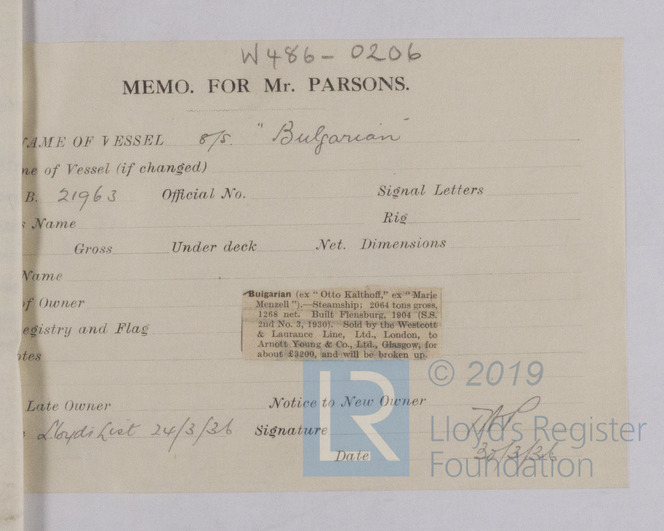 W486-0206
MEMO. FOR Mr. PARSONS.
NAME OF VESSEL S/S. "Bulgarian"
ne of Vessel (if changed)
B. 21963 Official No. Signal Letters
s Name Rig
Gross Under deck Net. Dimensions
Name
of Owner
egistry and Flag
otes
Bulgarian (ex "Otto Kalthoff," ex "Marie
Menzell").—Steamship; 2064 tons gross,
1268 net. Built Flensburg, 1904 (S.S.
2nd No. 3, 1930). Sold by the Westcott
& Laurance Line, Ltd., London, to
Arnott Young & Co., Ltd., Glasgow, for
about £3200, and will be broken up.
Late Owner Notice to New Owner
Lloyds List 24/3/36 Signature
Date 30/3/36
© 2019
LR
Lloyd's Register
Foundation